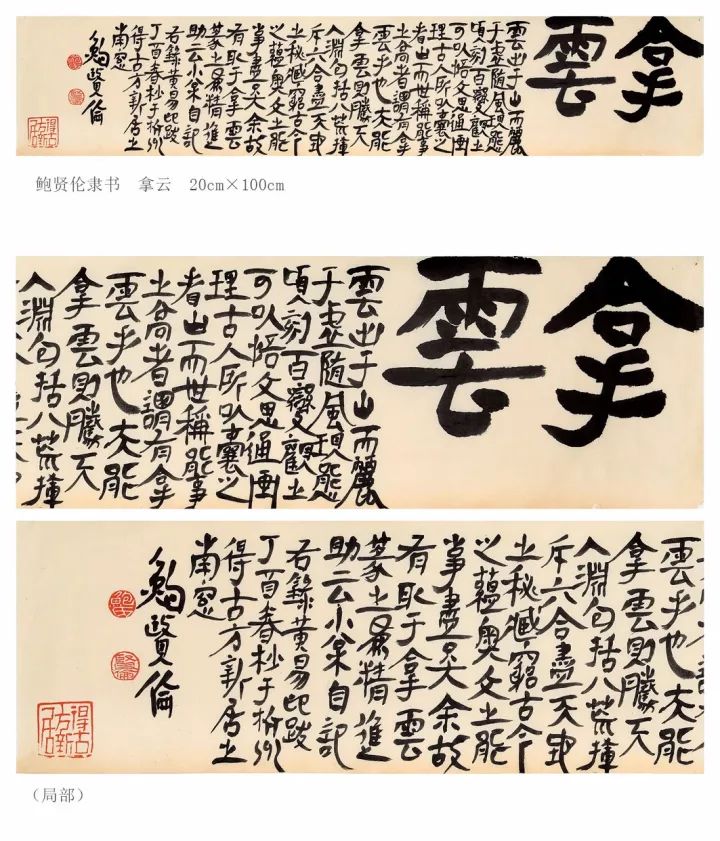 拿
雲
雲出于山而麗
于虚随風現態
頃刻百變觀之
可以悟文思通画
理古人所以囊之
者由而世稱能事
之尚者謂有拿
雲手也夫能
拿雲則勝天
入淵包括八荒揮
斥六合盡天地
之秘藏窮古今
之蘊奥文之能
事盡矣余故
有取于拿雲
篆之以爲精進
助云小枀自記
右録黄易印跋
丁酉春杪于杭州
得古方新居之
南窗
鮑賢倫
鲍贤伦隶书 拿云 20cm×100cm
拿
雲
雲出于山而麗
于虚随風現態
頃刻百變觀之
可以悟文思通画
理古人所以囊之
者由而世稱能事
之尚者謂有拿
雲手也夫能
拿雲則勝天
入淵包括八荒揮
雲手也夫能
拿雲則勝天
入淵包括八荒揮
斥六合盡天地
之秘藏窮古今
之蘊奥文之能
事盡矣余故
有取于拿雲
篆之以爲精進
助云小枀自記
右録黄易印跋
丁酉春杪于杭州
得古方新居之
南窗
鮑賢倫
得古方新居
（局部）